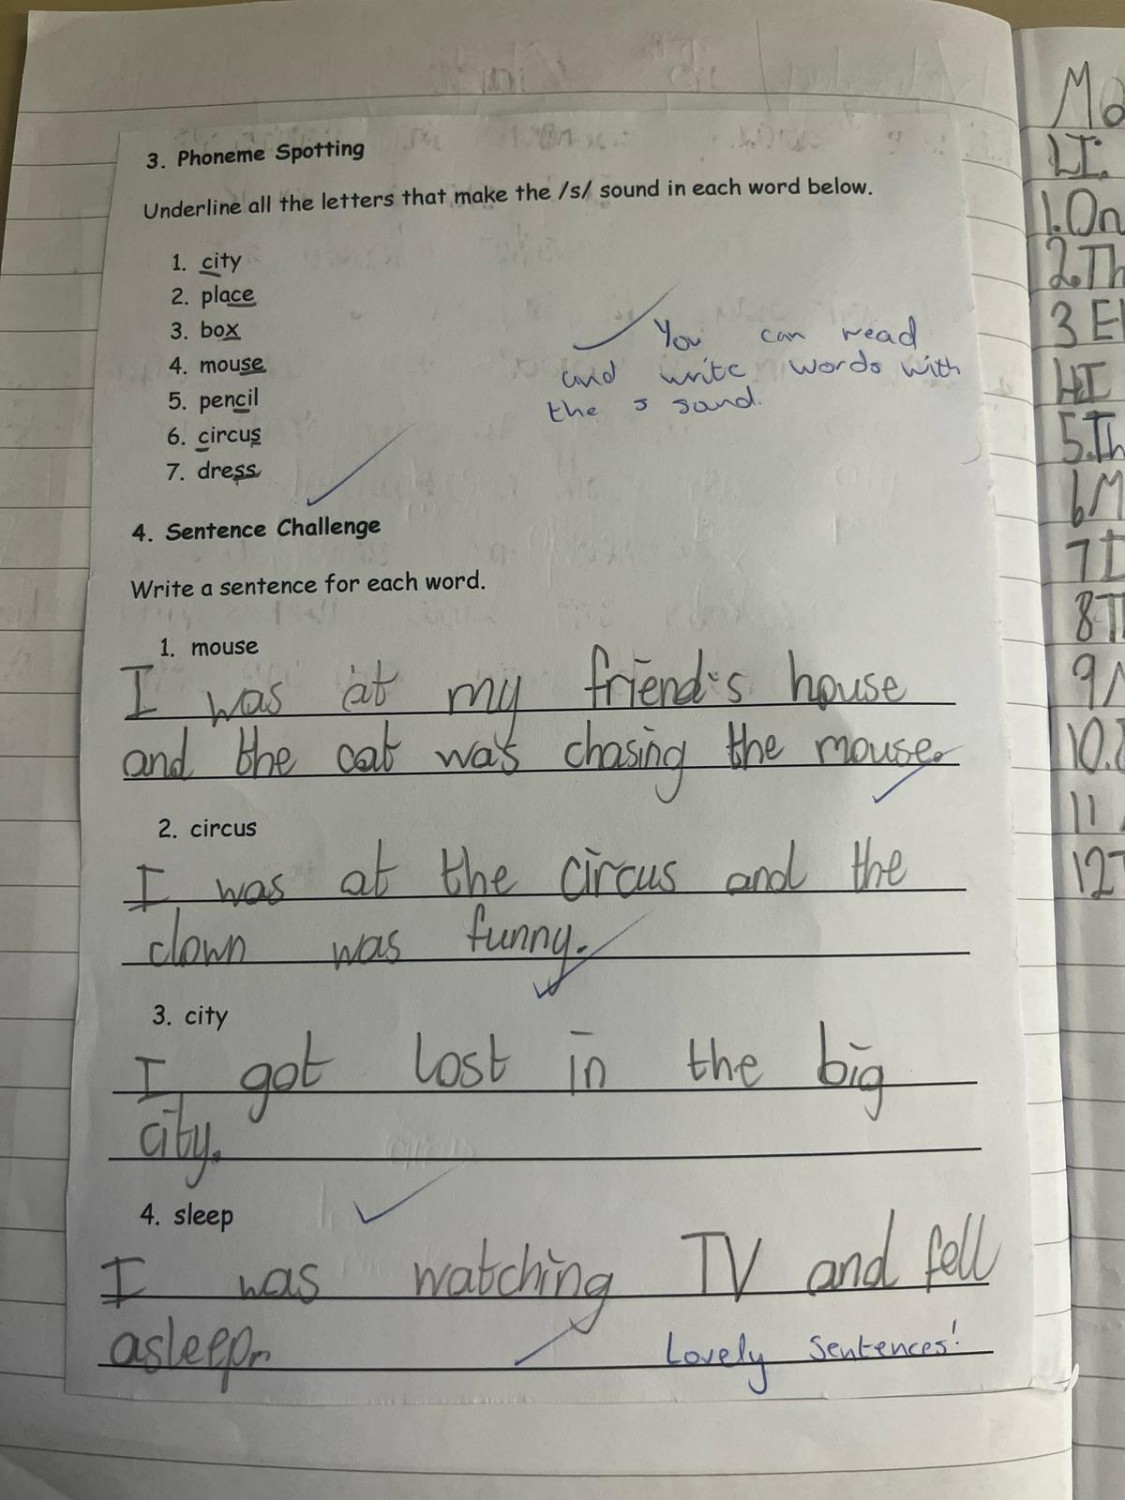 3. Phoneme Spotting
Underline all the letters that make the /s/ sound in each word below.
1. city
2. place
3. box
4. mouse
5. pencil
6. circus
7. dress
You can read
and write words with
the s sand.
4. Sentence Challenge
Write a sentence for each word.
1. mouse
I was at my friend's house
and the cat was chasing the mouse.
2. circus
I was at the circus and the
clown was funny.
3. city
I got lost in the big
city.
4. sleep
I was watching TV and fell
asleep.
Lovely sentences!
Mo
LI.
1.On
2.Th
3 El
4.I
5.Th
6M
7I
8Th
9
10.
11
12T